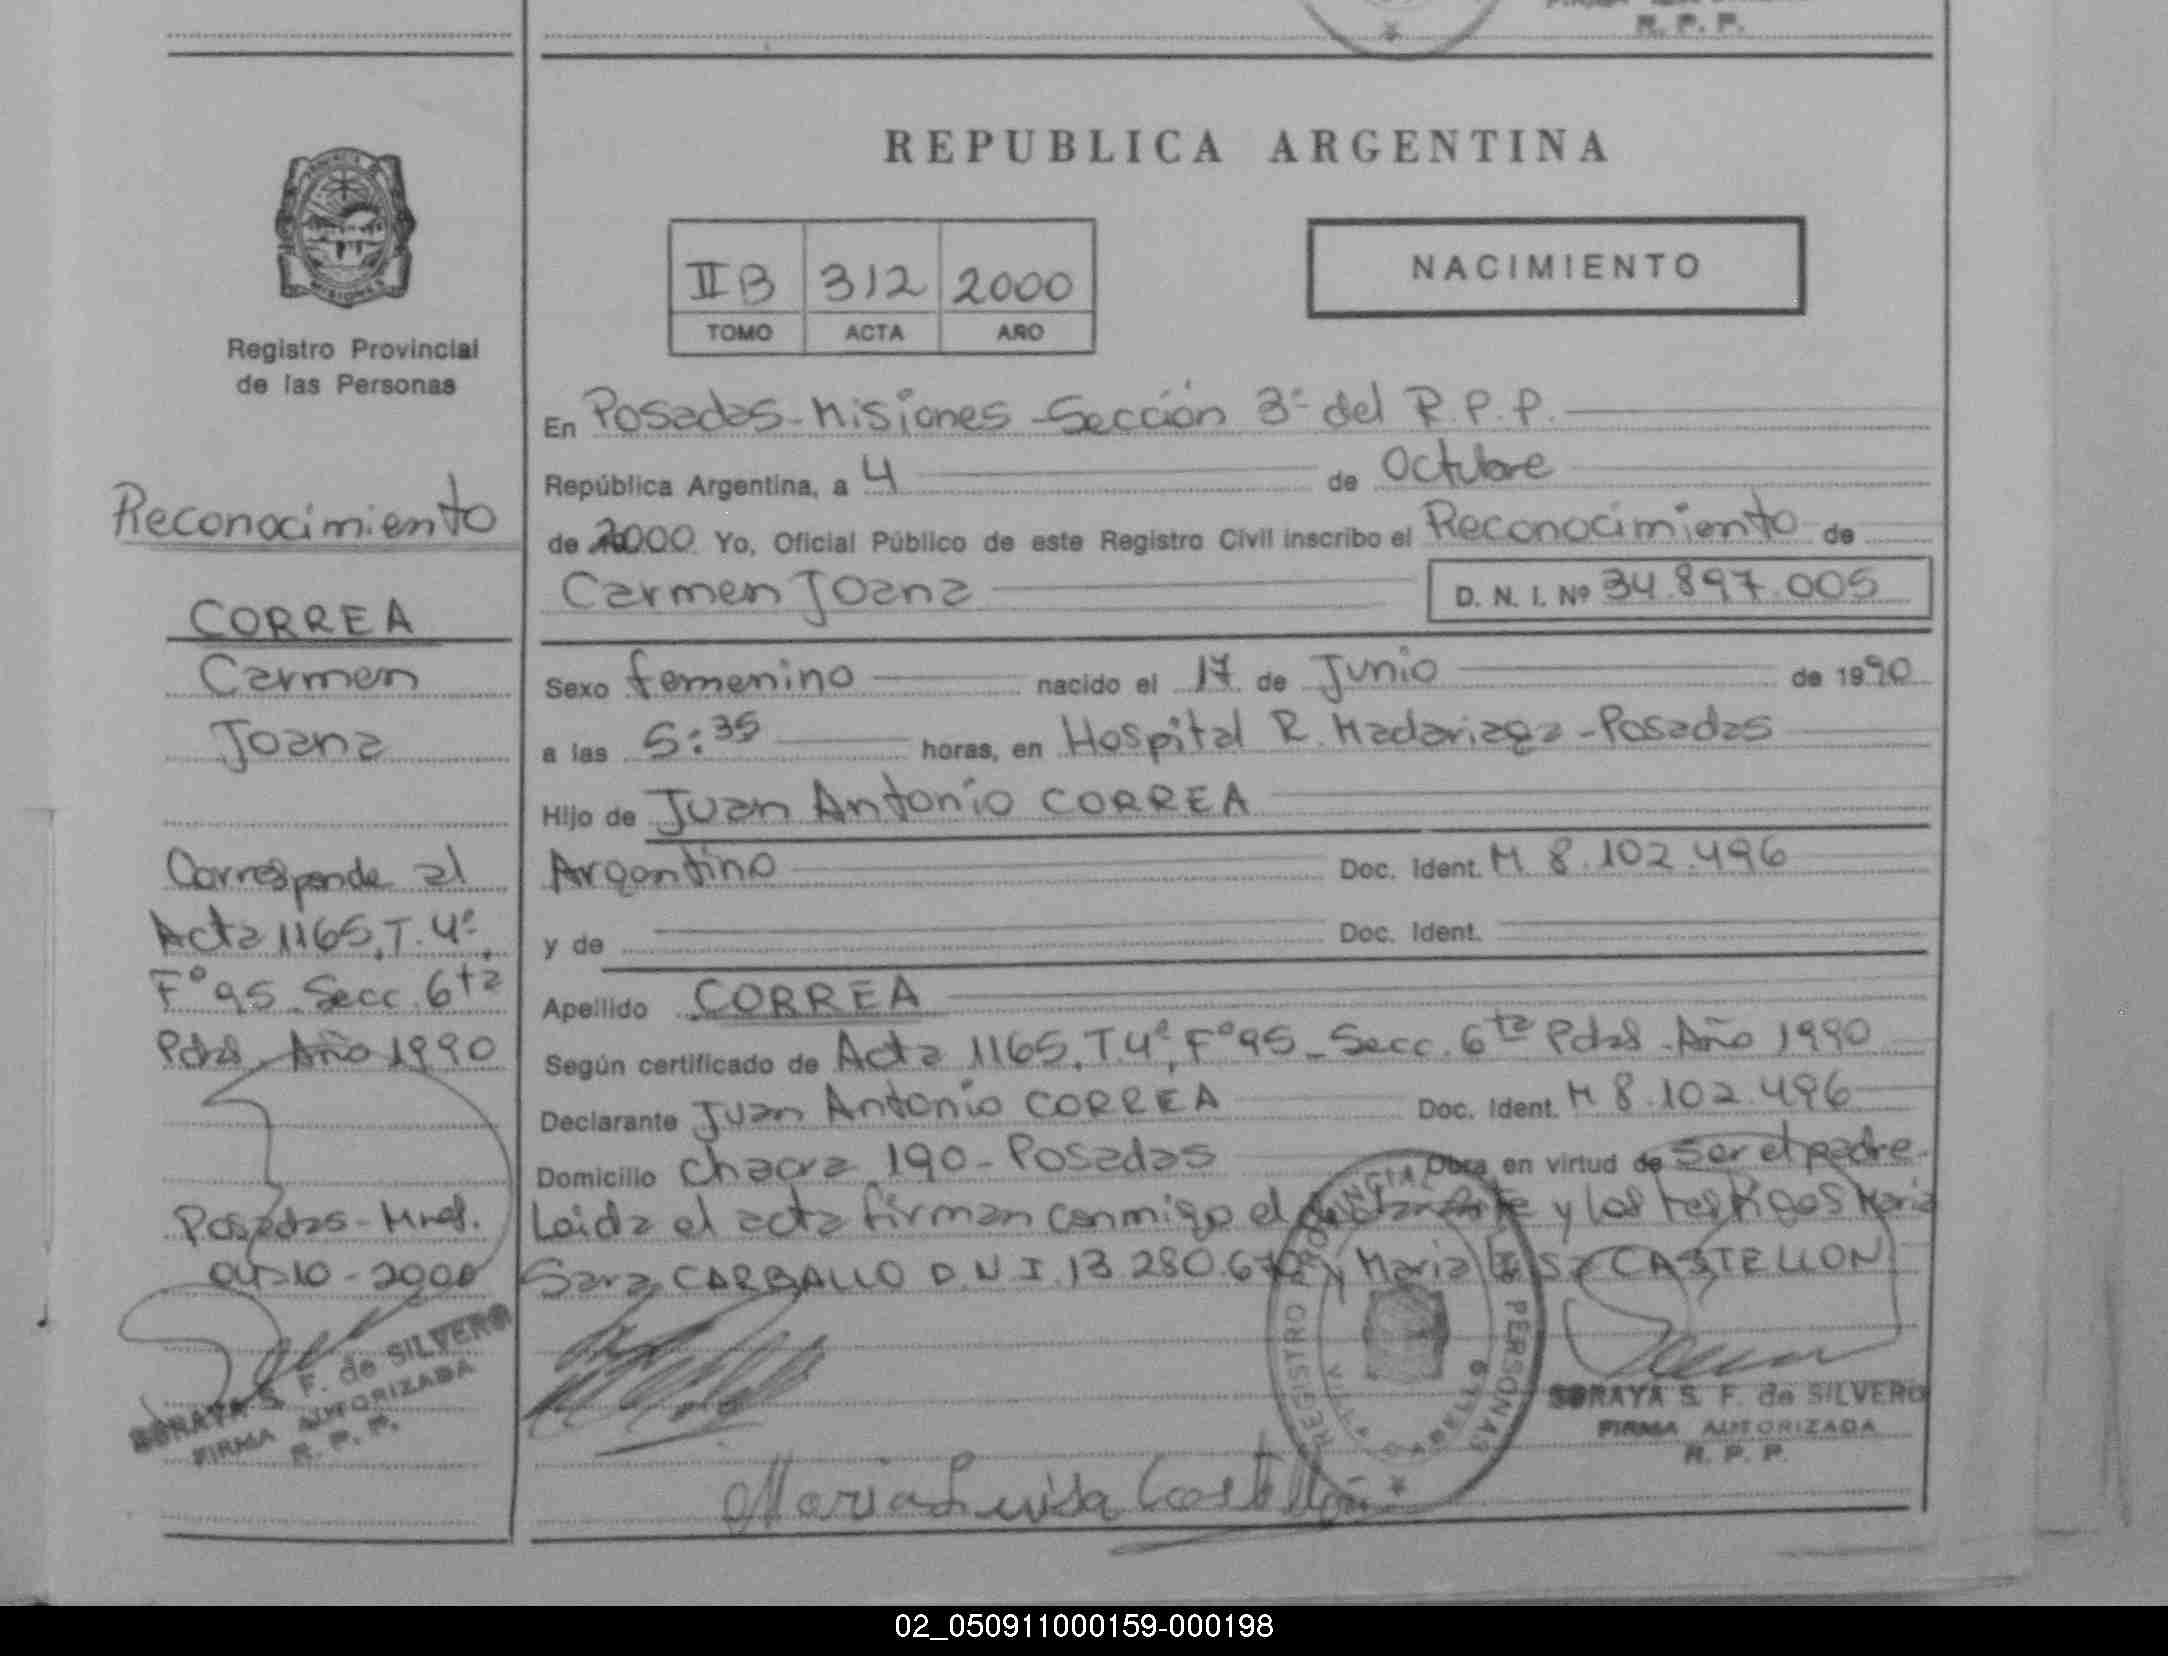 R. P. P.
REPUBLICA ARGENTINA
II B 312 2000
TOMO ACTA AÑO
NACIMIENTO
MISIONES
Registro Provincial
de las Personas
Reconocimiento
CORREA
Carmen
Joana
Corresponde al
Acta 1165, T. 4º,
Fº 95 - Secc. 6ta
Pdas. Año 1990
Posadas - Mnes.
04-10-2000
SORAYA S. F. de SILVERO
FIRMA AUTORIZADA
R. P. P.
En Posadas - Misiones - Sección 3º del R. P. P.
República Argentina, a 4 de Octubre
de 2000 Yo, Oficial Público de este Registro Civil inscribo el Reconocimiento de
Carmen Joana D. N. I. Nº 34.897.005
Sexo femenino nacido el 17 de Junio de 1990
a las 5:35 horas, en Hospital R. Madariaga - Posadas
Hijo de Juan Antonio CORREA
Argentino Doc. Ident. M 8.102.496
y de Doc. Ident.
Apellido CORREA
Según certificado de Acta 1165, T. 4º, Fº 95 - Secc. 6ta Pdas - Año 1990
Declarante Juan Antonio CORREA Doc. Ident. M 8.102.496
Domicilio Chacra 190 - Posadas Obra en virtud de ser el padre
Leida el acta firman conmigo el y los testigos Maria
Sara CARBALLO D.N.I. 13.280.670 y Maria Luisa CASTELLON
REGISTRO PROVINCIAL DE LAS PERSONAS
SORAYA S. F. de SILVERO
FIRMA AUTORIZADA
R. P. P.
Maria Luisa Castellón
02_050911000159-000198